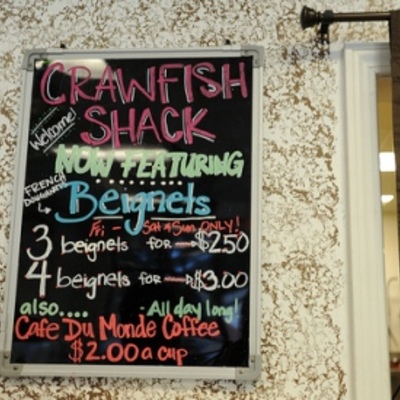 CRAWFISH
SHACK
Welcome!
NOW FEATURING
FRENCH
DOUGHNUTS
Beignets
Fri - Sat & Sun ONLY!
3 beignets for $2.50
4 beignets for $3.00
also.... - All day long!
Cafe Du Monde Coffee
$2.00 a cup